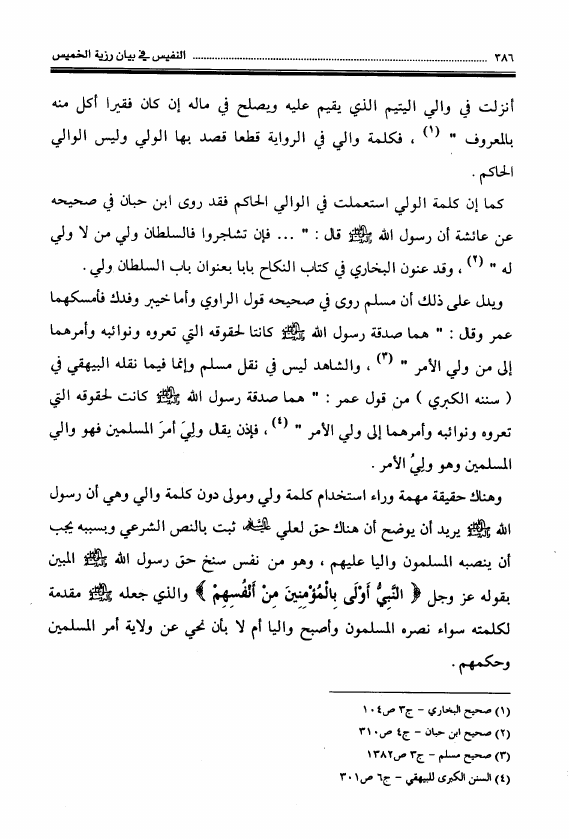 ٣٨٦ ........................................ النفيس في بيان رزية الخميس
أنزلت في والي اليتيم الذي يقيم عليه ويصلح في ماله إن كان فقيرا أكل منه
بالمعروف " (١) ، فكلمة والي في الرواية قطعا قصد بها الولي وليس الوالي
الحاكم .
كما إن كلمة الولي استعملت في الوالي الحاكم فقد روى ابن حبان في صحيحه
عن عائشة أن رسول الله ﷺ قال : " ... فإن تشاجروا فالسلطان ولي من لا ولي
له " (٢) ، وقد عنون البخاري في كتاب النكاح بابا بعنوان باب السلطان ولي .
ويدل على ذلك أن مسلم روى في صحيحه قول الراوي وأما خيبر وفدك فأمسكهما
عمر وقال : " هما صدقة رسول الله ﷺ كانتا لحقوقه التي تعروه ونوائبه وأمرهما
إلى من ولي الأمر " (٣) ، والشاهد ليس في نقل مسلم وإنما فيما نقله البيهقي في
( سننه الكبري ) من قول عمر : " هما صدقة رسول الله ﷺ كانت لحقوقه التي
تعروه ونوائبه وأمرهما إلى ولي الأمر " (٤) ، فإذن يقال ولِيَ أمرَ المسلمين فهو والي
المسلمين وهو وليُ الأمر .
وهناك حقيقة مهمة وراء استخدام كلمة ولي ومولى دون كلمة والي وهي أن رسول
الله ﷺ يريد أن يوضح أن هناك حق لعلي عليه السلام ثبت بالنص الشرعي وبسببه يجب
أن ينصبه المسلمون واليا عليهم ، وهو من نفس سنخ حق رسول الله ﷺ المبين
بقوله عز وجل ﴿ النَّبِيُّ أَوْلَى بِالْمُؤْمِنِينَ مِنْ أَنْفُسِهِمْ ﴾ والذي جعله ﷺ مقدمة
لكلمته سواء نصره المسلمون وأصبح واليا أم لا بأن نحي عن ولاية أمر المسلمين
وحكمهم .
(١) صحيح البخاري – ج٣ ص١٠٤
(٢) صحيح ابن حبان – ج٤ ص٣١٠
(٣) صحيح مسلم – ج٣ ص١٣٨٢
(٤) السنن الكبرى للبيهقي – ج٦ ص٣٠١